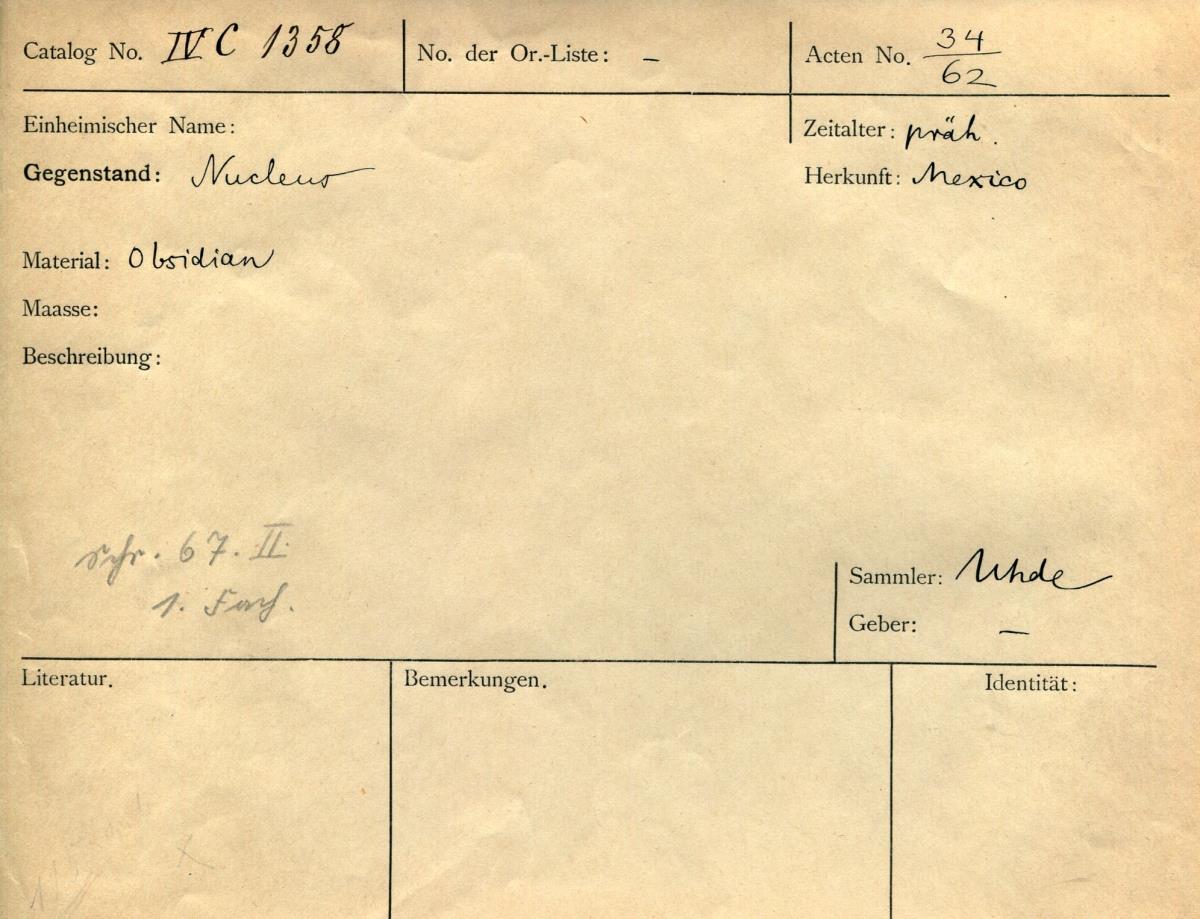 Catalog No. IV C 1358
No. der Or.-Liste: –
Acten No. 34/62
Einheimischer Name:
Zeitalter: präh.
Gegenstand: Nucleus
Herkunft: Mexico
Material: Obsidian
Maasse:
Beschreibung:
Schr. 67. II.
1. Fach.
Sammler: Uhde
Geber: –
Literatur.
Bemerkungen.
Identität: